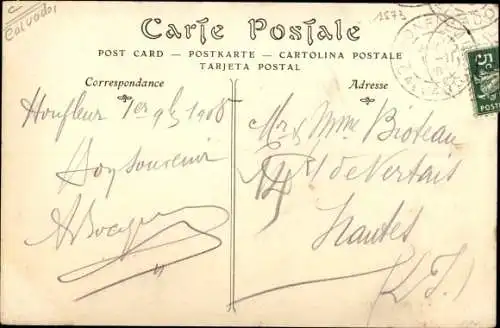 C
Calvados
1573
Carte Postale
POST CARD — POSTKARTE — CARTOLINA POSTALE
TARJETA POSTAL
Correspondance
Adresse
5
POST
Honfleur 1er 9bre 1908
Bon Souvenir
Mr & Mme Bioteau
de Vertais
Nantes
(L. I.)